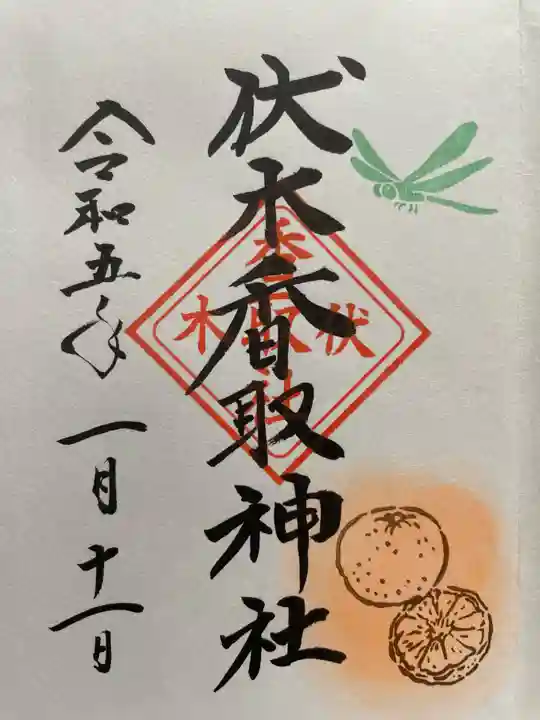 伏木香取神社
伏木
香取神社
令和五年 一月十一日